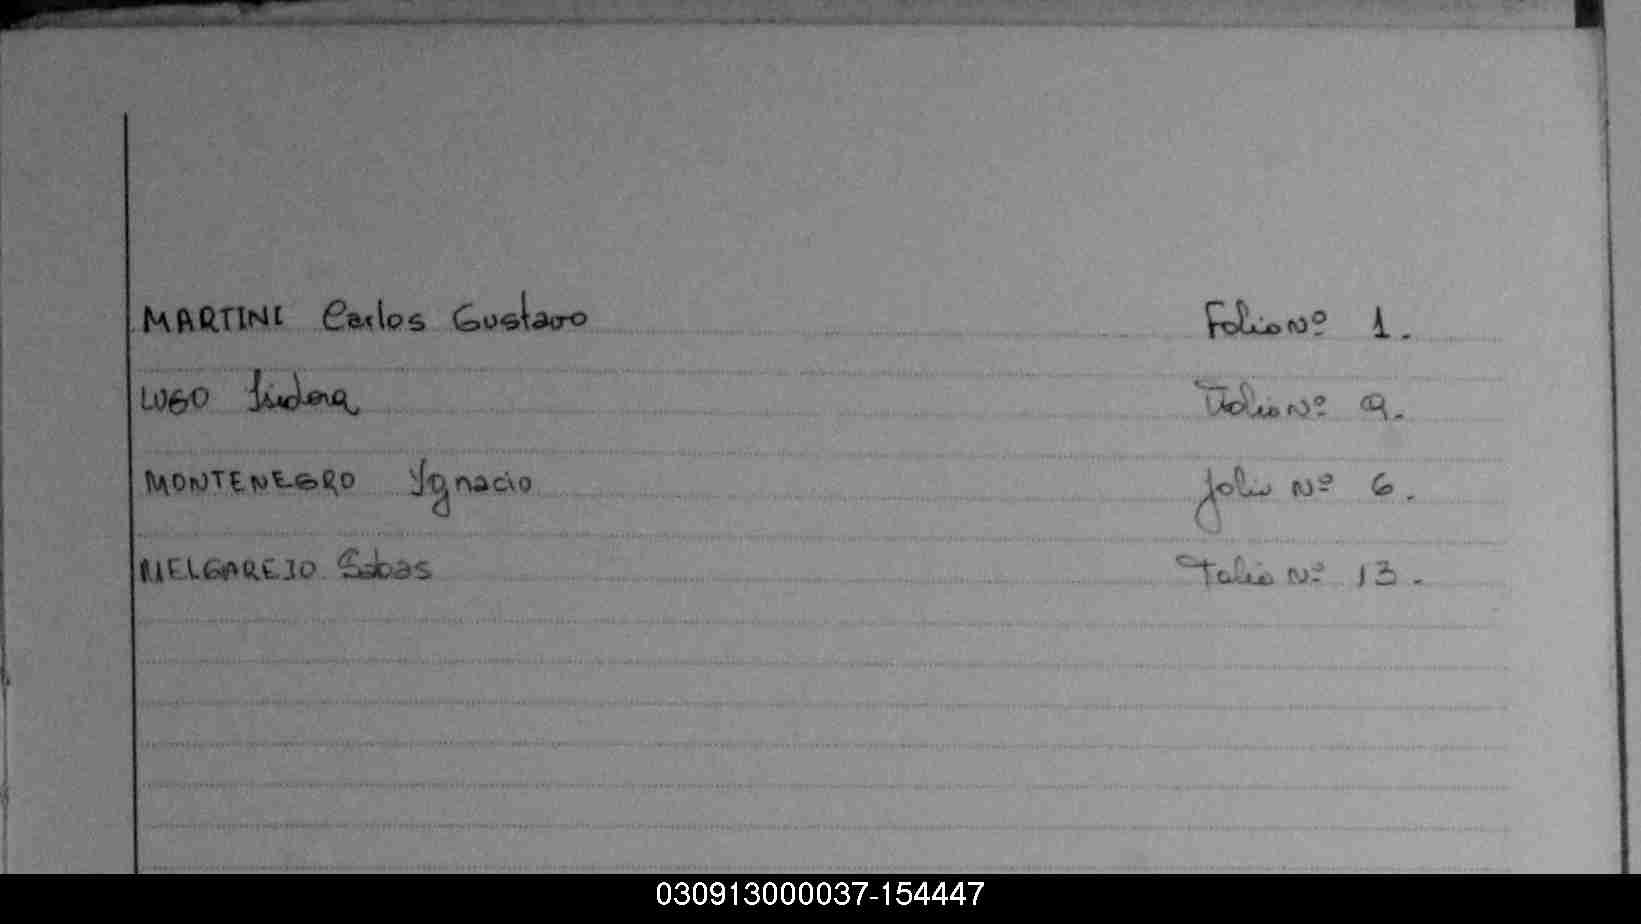 MARTINI Carlos Gustavo Folio Nº 1.
LUGO Isidora Folio Nº 9.
MONTENEGRO Ygnacio folio Nº 6.
MELGAREJO Sabas Folio Nº 13.
030913000037-154447